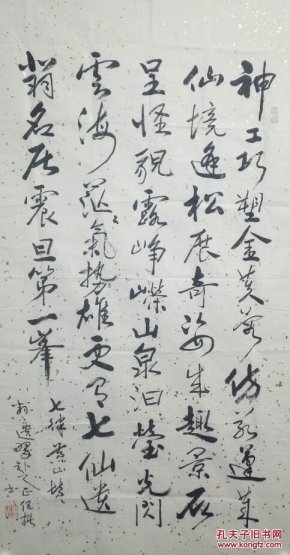 神工巧塑金芙蓉仿若蓬莱
仙境逢松展奇姿成趣景石
呈怪貌露峥嶸山泉汩莹光闪
雲海茫〻氣勢雄更有七仙遗
名居震旦第一峯
七律黄山赞
孔夫子旧书网